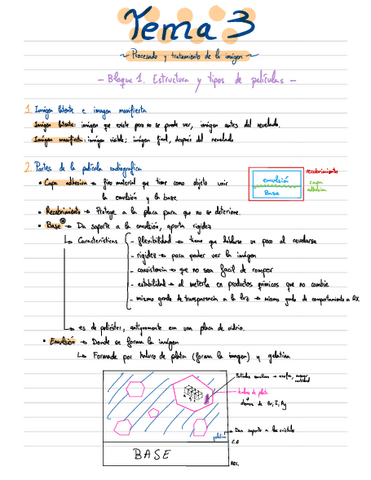 Tema 3
~ Procesado y tratamiento de la imagen ~
- Bloque 1. Estructura y tipos de películas -
1. Imagen latente e imagen manifiesta
Imagen latente: imagen que existe pero no se puede ver, imagen antes del revelado.
Imagen manifiesta: imagen visible; imagen final, después del revelado
2. Partes de la película radiografica
• Capa adhesiva → fino material que tiene como objeto unir
la emulsión y la base
• Recubrimiento → Protege a la placa para que no se deteriore.
• Base → Da soporte a la emulsión, aporta rigidez
↳ Características
- flexibilidad → tiene que doblarse un poco al revelarse
- rigidez → para poder ver la imagen
- consistencia → que no sea facil de romper
- estabilidad → al meterla en productos químicos que no cambie
- mismo grado de transparencia a la luz → mismo grado de comportamiento a RX.
↳ es de poliéster, antiguamente era una placa de vidrio.
• Emulsión → Donde se forma la imagen
↳ Formada por haluros de plata (forma la imagen) y gelatina
recubrimiento
emulsión
Base
capa
adhesiva
haluros de plata
átomos de Br, I, Ag
gelatina
Da soporte a los cristales
C.A
BASE
REC.